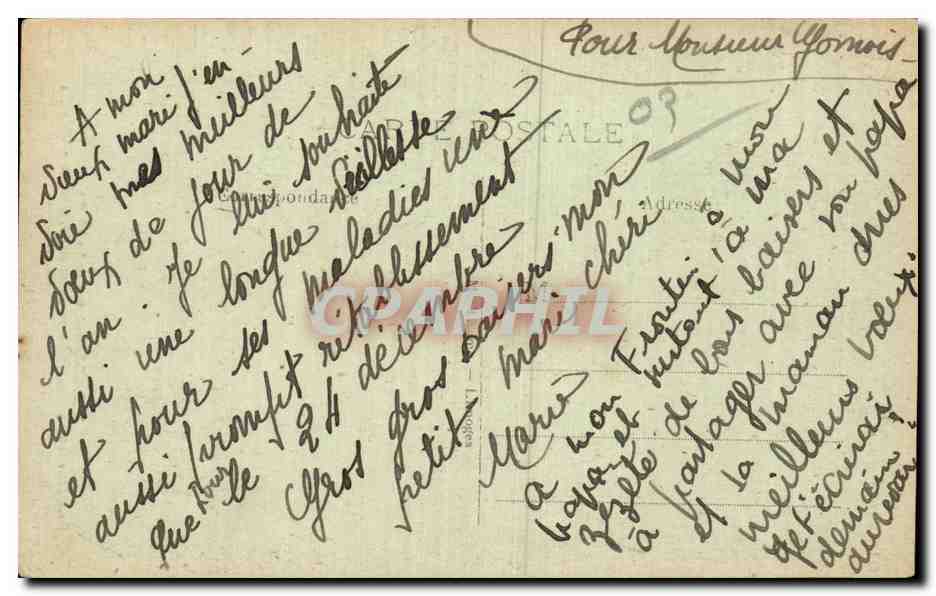 Pour Monsieur
03
CARTE POSTALE
Correspondance
Adresse
A mon
vieux mari j'en
voie mes meilleurs
voeux de jour de
l'an. Je lui souhaite
aussi une longue vieillesse
et pour ses maladies une
aussi prompt rétablissement
que pour le 24 décembre
Gros gros baisers mon
petit mari chéri
Marie
à mon
papa et surtout à ma
de bons baisers et
à partager avec son papa
et la maman
meilleurs voeux.
Je t'écrirai
demain
au revoir
CPAPHIL
Limoges